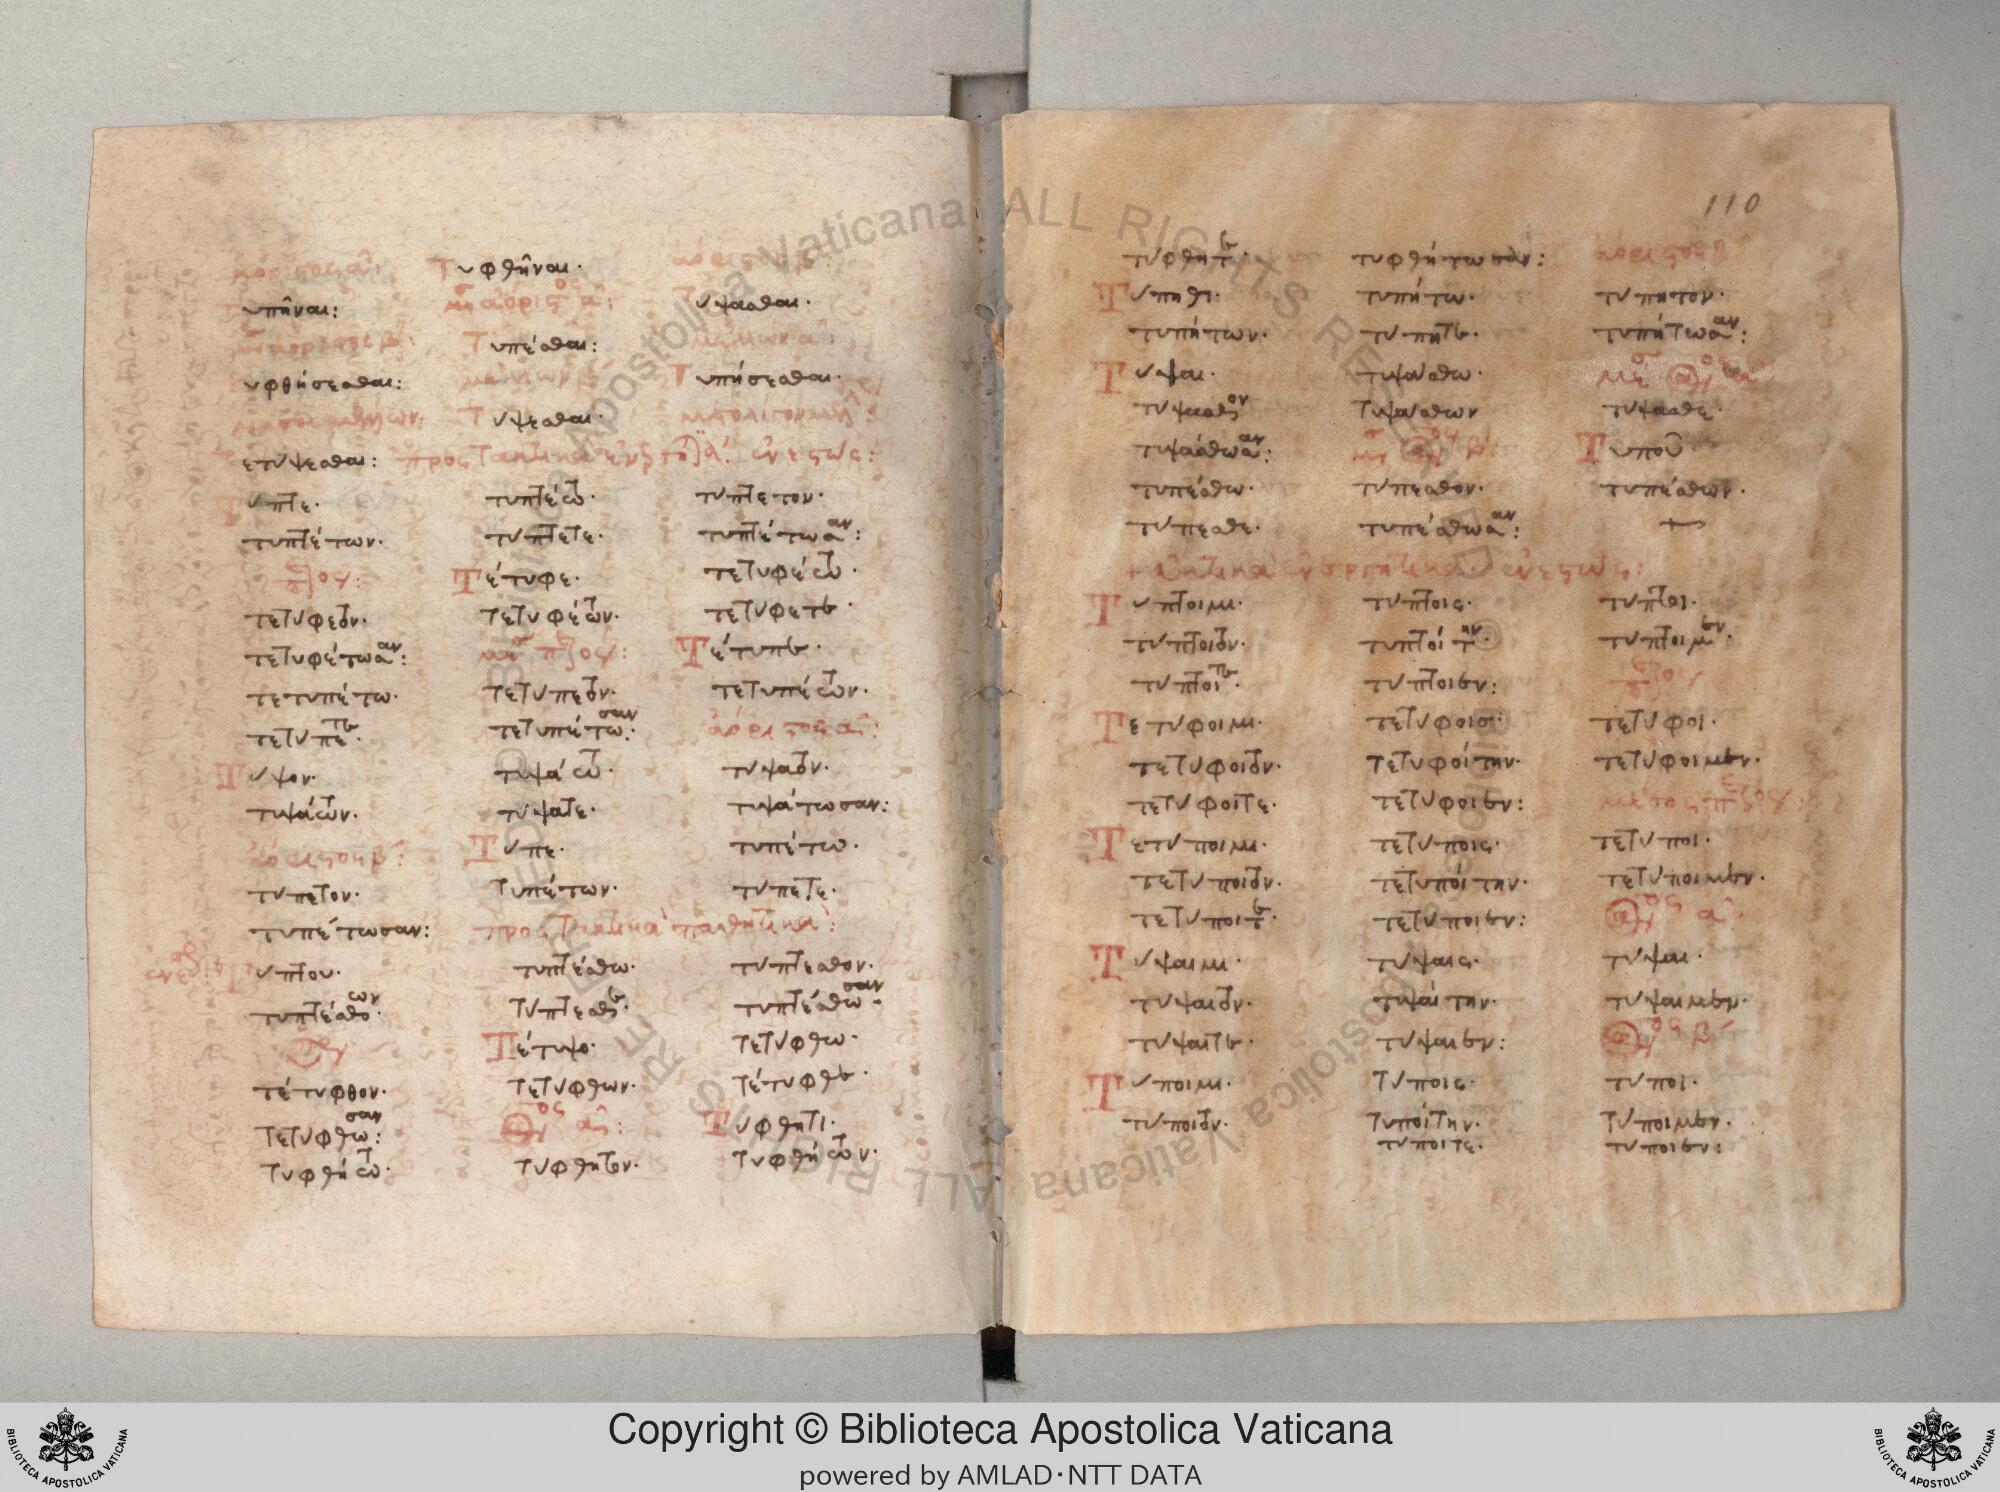 ἀόριστος α:    Τυφθῆναι·    ἀόριστος β:
Τυπῆναι:    μέσος ἀόριστος α:    Τύψασθαι·
μέσος ἀόριστος β:    Τυπέσθαι:    μέλλων α:
Τυφθήσεσθαι:    μέλλων β    Τυπήσεσθαι·
Τύψεσθαι·
Τετύψεσθαι: προστακτικὰ ἐνεργητικά: ἐνεστώς:
Τύπτε·    τυπτέτω·    τύπτετον·
τυπτέτων·    τύπτετε·    τυπτέτωσαν:
Τέτυφε·    τετυφέτω·
τετύφετον·    τετυφέτων·    τετύφετε·
τετυφέτωσαν:    Τέτυπε·
τετυπέτω·    τετύπετον·    τετυπέτων·
τετύπετε·    τετυπέτωσαν:    ἀόριστος α:
Τύψον·    τυψάτω·    τύψατον·
τυψάτων·    τύψατε·    τυψάτωσαν:
ἀόριστος β:    Τύπε·    τυπέτω·
τύπετον·    τυπέτων·    τύπετε·
τυπέτωσαν:    προστακτικὰ παθητικά:
Τύπτου·    τυπτέσθω·    τύπτεσθον·
τυπτέσθων·    τύπτεσθε·    τυπτέσθωσαν·
Τέτυψο·    τετύφθω·
τέτυφθον·    τετύφθων·    τέτυφθε·
τετύφθωσαν:    Τύφθητι·
τυφθήτω·    τύφθητον·    τυφθήτων·
110
τύφθητε·    τυφθήτωσαν:    ἀόριστος β
Τύπηθι·    τυπήτω·    τύπητον·
τυπήτων·    τύπητε·    τυπήτωσαν:
Τύψαι·    τυψάσθω·
τύψασθον    τυψάσθων    τύψασθε·
τυψάσθωσαν:    Τυποῦ·
τυπέσθω·    τύπεσθον·    τυπέσθων·
τύπεσθε·    τυπέσθωσαν:
+ εὐκτικὰ ἐνεργητικά· ἐνεστώς:
Τύπτοιμι·    τύπτοις·    τύπτοι·
τύπτοιτον·    τυπτοίτην·    τύπτοιμεν·
τύπτοιτε·    τύπτοιεν:
Τετύφοιμι·    τετύφοις·    τετύφοι·
τετύφοιτον·    τετυφοίτην·    τετύφοιμεν·
τετύφοιτε·    τετύφοιεν:
Τετύποιμι·    τετύποις·    τετύποι·
τετύποιτον·    τετυποίτην·    τετύποιμεν·
τετύποιτε·    τετύποιεν:
Τύψαιμι·    τύψαις·    τύψαι·
τύψαιτον·    τυψαίτην·    τύψαιμεν·
τύψαιτε·    τύψαιεν:
Τύποιμι·    τύποις·    τύποι·
τύποιτον·    τυποίτην·    τύποιμεν·
τύποιτε·    τύποιεν:
Copyright © Biblioteca Apostolica Vaticana
powered by AMLAD·NTT DATA